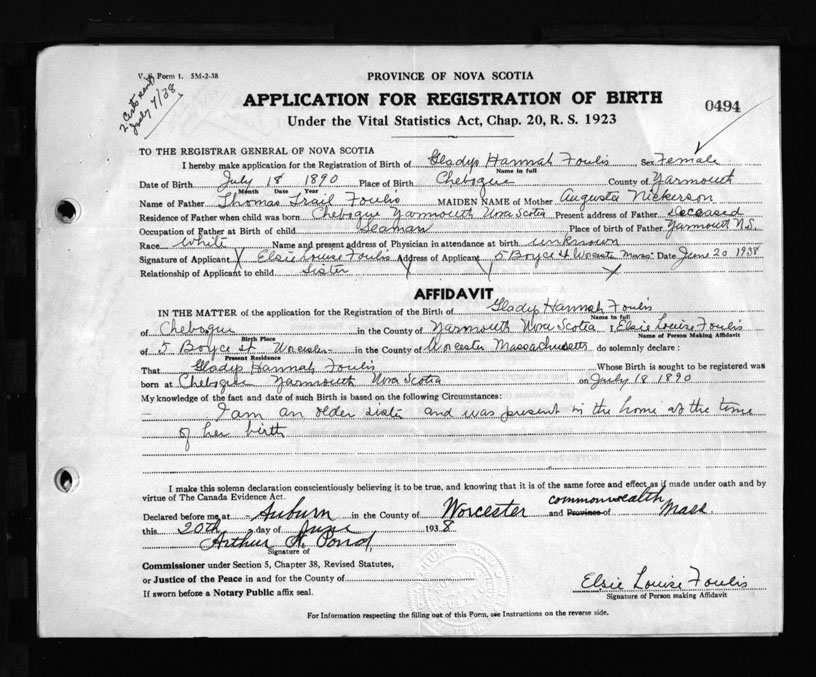 V.S. Form 1. 5M-2-38
PROVINCE OF NOVA SCOTIA
2 Certs sent
July 4/38
APPLICATION FOR REGISTRATION OF BIRTH
0494
Under the Vital Statistics Act, Chap. 20, R. S. 1923
TO THE REGISTRAR GENERAL OF NOVA SCOTIA
I hereby make application for the Registration of Birth of Gladys Hannah Foulis Sex Female
Name in full
Date of Birth July 18 1890 Place of Birth Chebogue County of Yarmouth
Month Date Year
Name of Father Thomas Trail Foulis MAIDEN NAME of Mother Augusta Nickerson
Residence of Father when child was born Chebogue Yarmouth Nova Scotia Present address of Father deceased
Occupation of Father at Birth of child Seaman Place of birth of Father Yarmouth N.S.
Race White Name and present address of Physician in attendance at birth unknown
Signature of Applicant X Elsie Louise Foulis Address of Applicant 5 Boyce St Worcester Mass Date June 20 1938
Relationship of Applicant to child Sister
AFFIDAVIT
IN THE MATTER of the application for the Registration of the Birth of Gladys Hannah Foulis
Name in full
of Chebogue in the County of Yarmouth Nova Scotia I, Elsie Louise Foulis
Birth Place Name of Person Making Affidavit
of 5 Boyce St Worcester in the County of Worcester Massachusetts do solemnly declare :
Present Residence
That Gladys Hannah Foulis Whose Birth is sought to be registered was
born at Chebogue Yarmouth Nova Scotia on July 18 1890
My knowledge of the fact and date of such Birth is based on the following Circumstances:
I am an older sister and was present in the home at the time
of her birth
I make this solemn declaration conscientiously believing it to be true, and knowing that it is of the same force and effect as if made under oath and by
virtue of The Canada Evidence Act.
commonwealth
Declared before me at Auburn in the County of Worcester and Province of Mass.
this 20th day of June 1938
Arthur N. Pond
Signature of
Commissioner under Section 5, Chapter 38, Revised Statutes,
or Justice of the Peace in and for the County of
If sworn before a Notary Public affix seal.
Elsie Louise Foulis
Signature of Person making Affidavit
For Information respecting the filling out of this Form, see Instructions on the reverse side.